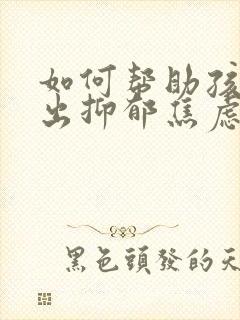 如何帮助孩
出抑郁焦虑
黑色頭發的天